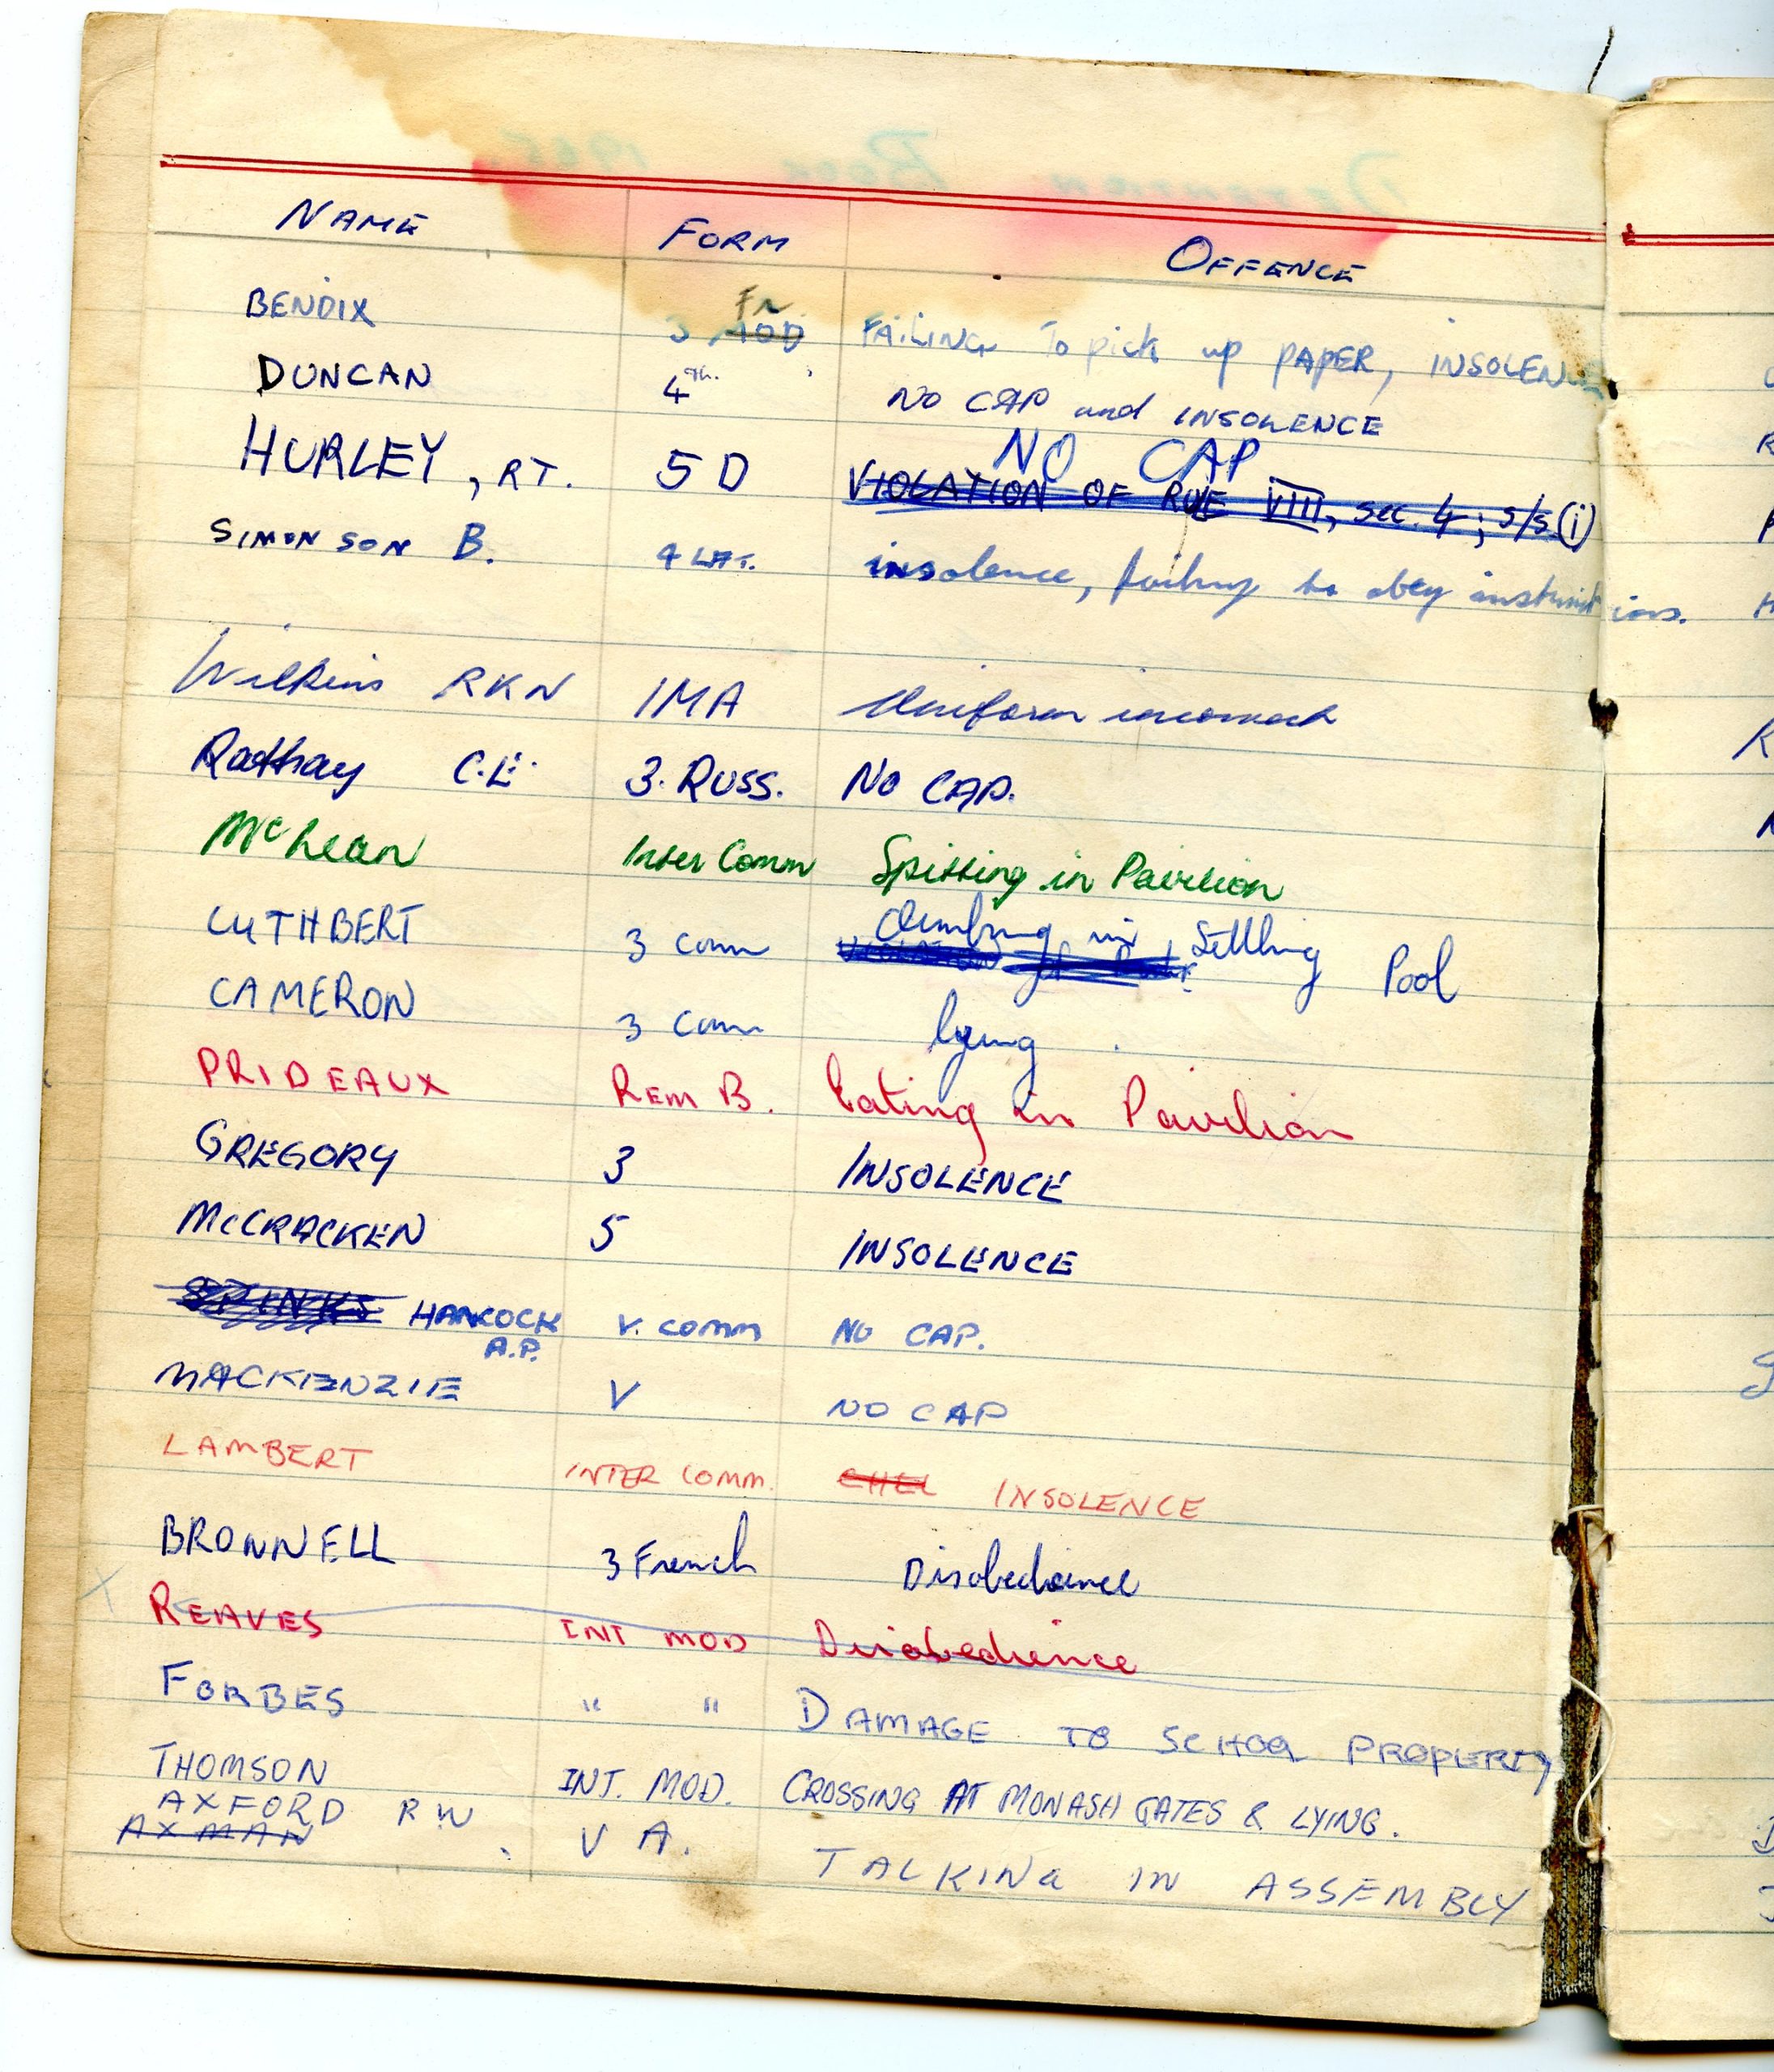 NAME FORM OFFENCE
BENDIX 3 MOD Fr FAILING To pick up PAPER, INSOLENCE
DUNCAN 4th. NO CAP and INSOLENCE
HURLEY, RT. 5D NO CAP
VIOLATION OF RULE VIII, sec. 4; s/s (i)
SIMONSON B. 4 LAT. insolence, failing to obey instructions.
Wilkins RKN IMA Uniform incorrect
Rathay C.E. 3. RUSS. NO CAP.
McLean Inter Comm Spitting in Pavilion
CUTHBERT 3 Comm Climbing in Settling Pool
CAMERON 3 Comm lying.
PRIDEAUX REM B. Eating in Pavilion
GREGORY 3 INSOLENCE
McCRACKEN 5 INSOLENCE
SPINKS HANCOCK A.P. V. COMM NO CAP.
MACKENZIE V NO CAP
LAMBERT INTER COMM. INSOLENCE
BROWNELL 3 French Disobedience
REAVES INT MOD Disobedience
FORBES " " DAMAGE TO SCHOOL PROPERTY
THOMSON INT. MOD. CROSSING AT MONASH GATES & LYING.
AXFORD RW V A. TALKING IN ASSEMBLY
AXMAN